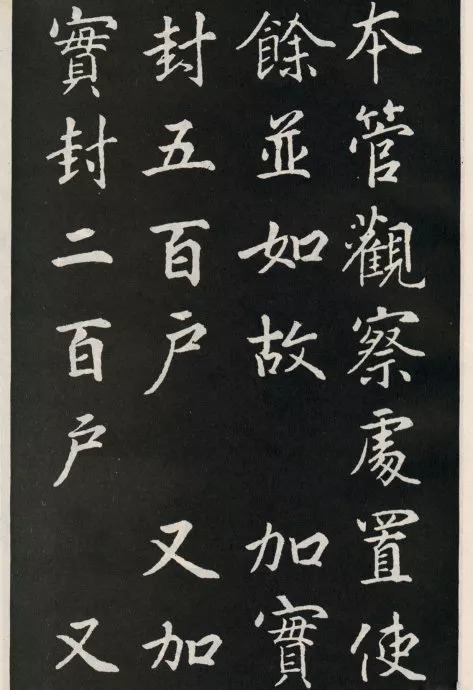 本管觀察處置使
餘並如故 加實
封五百户 又加
實封二百户 又